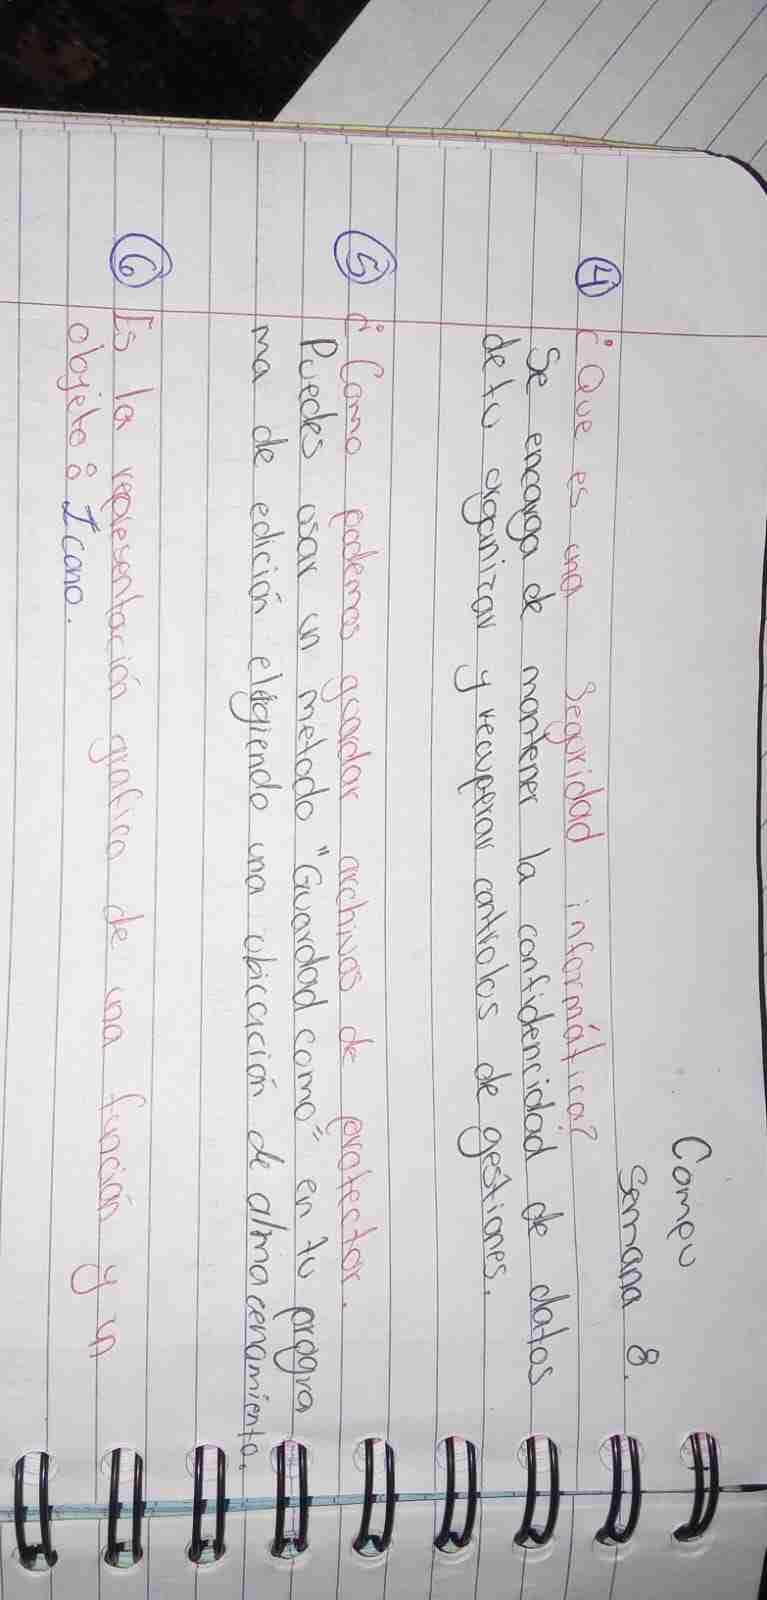 Compu
Semana 8.
④ ¿Que es una seguridad informática?
Se encarga de mantener la confidencidad de datos
de tu organizar y recuperar controlos de gestiones.
⑤ ¿Como podemos guardar archivos de protector.
Puedes usar un metodo "Guardad como" en tu progra
ma de edición eligiendo una ubicación de alma cenamiento.
⑥ Es la representación grafica de una función y un
objeto: Icono.